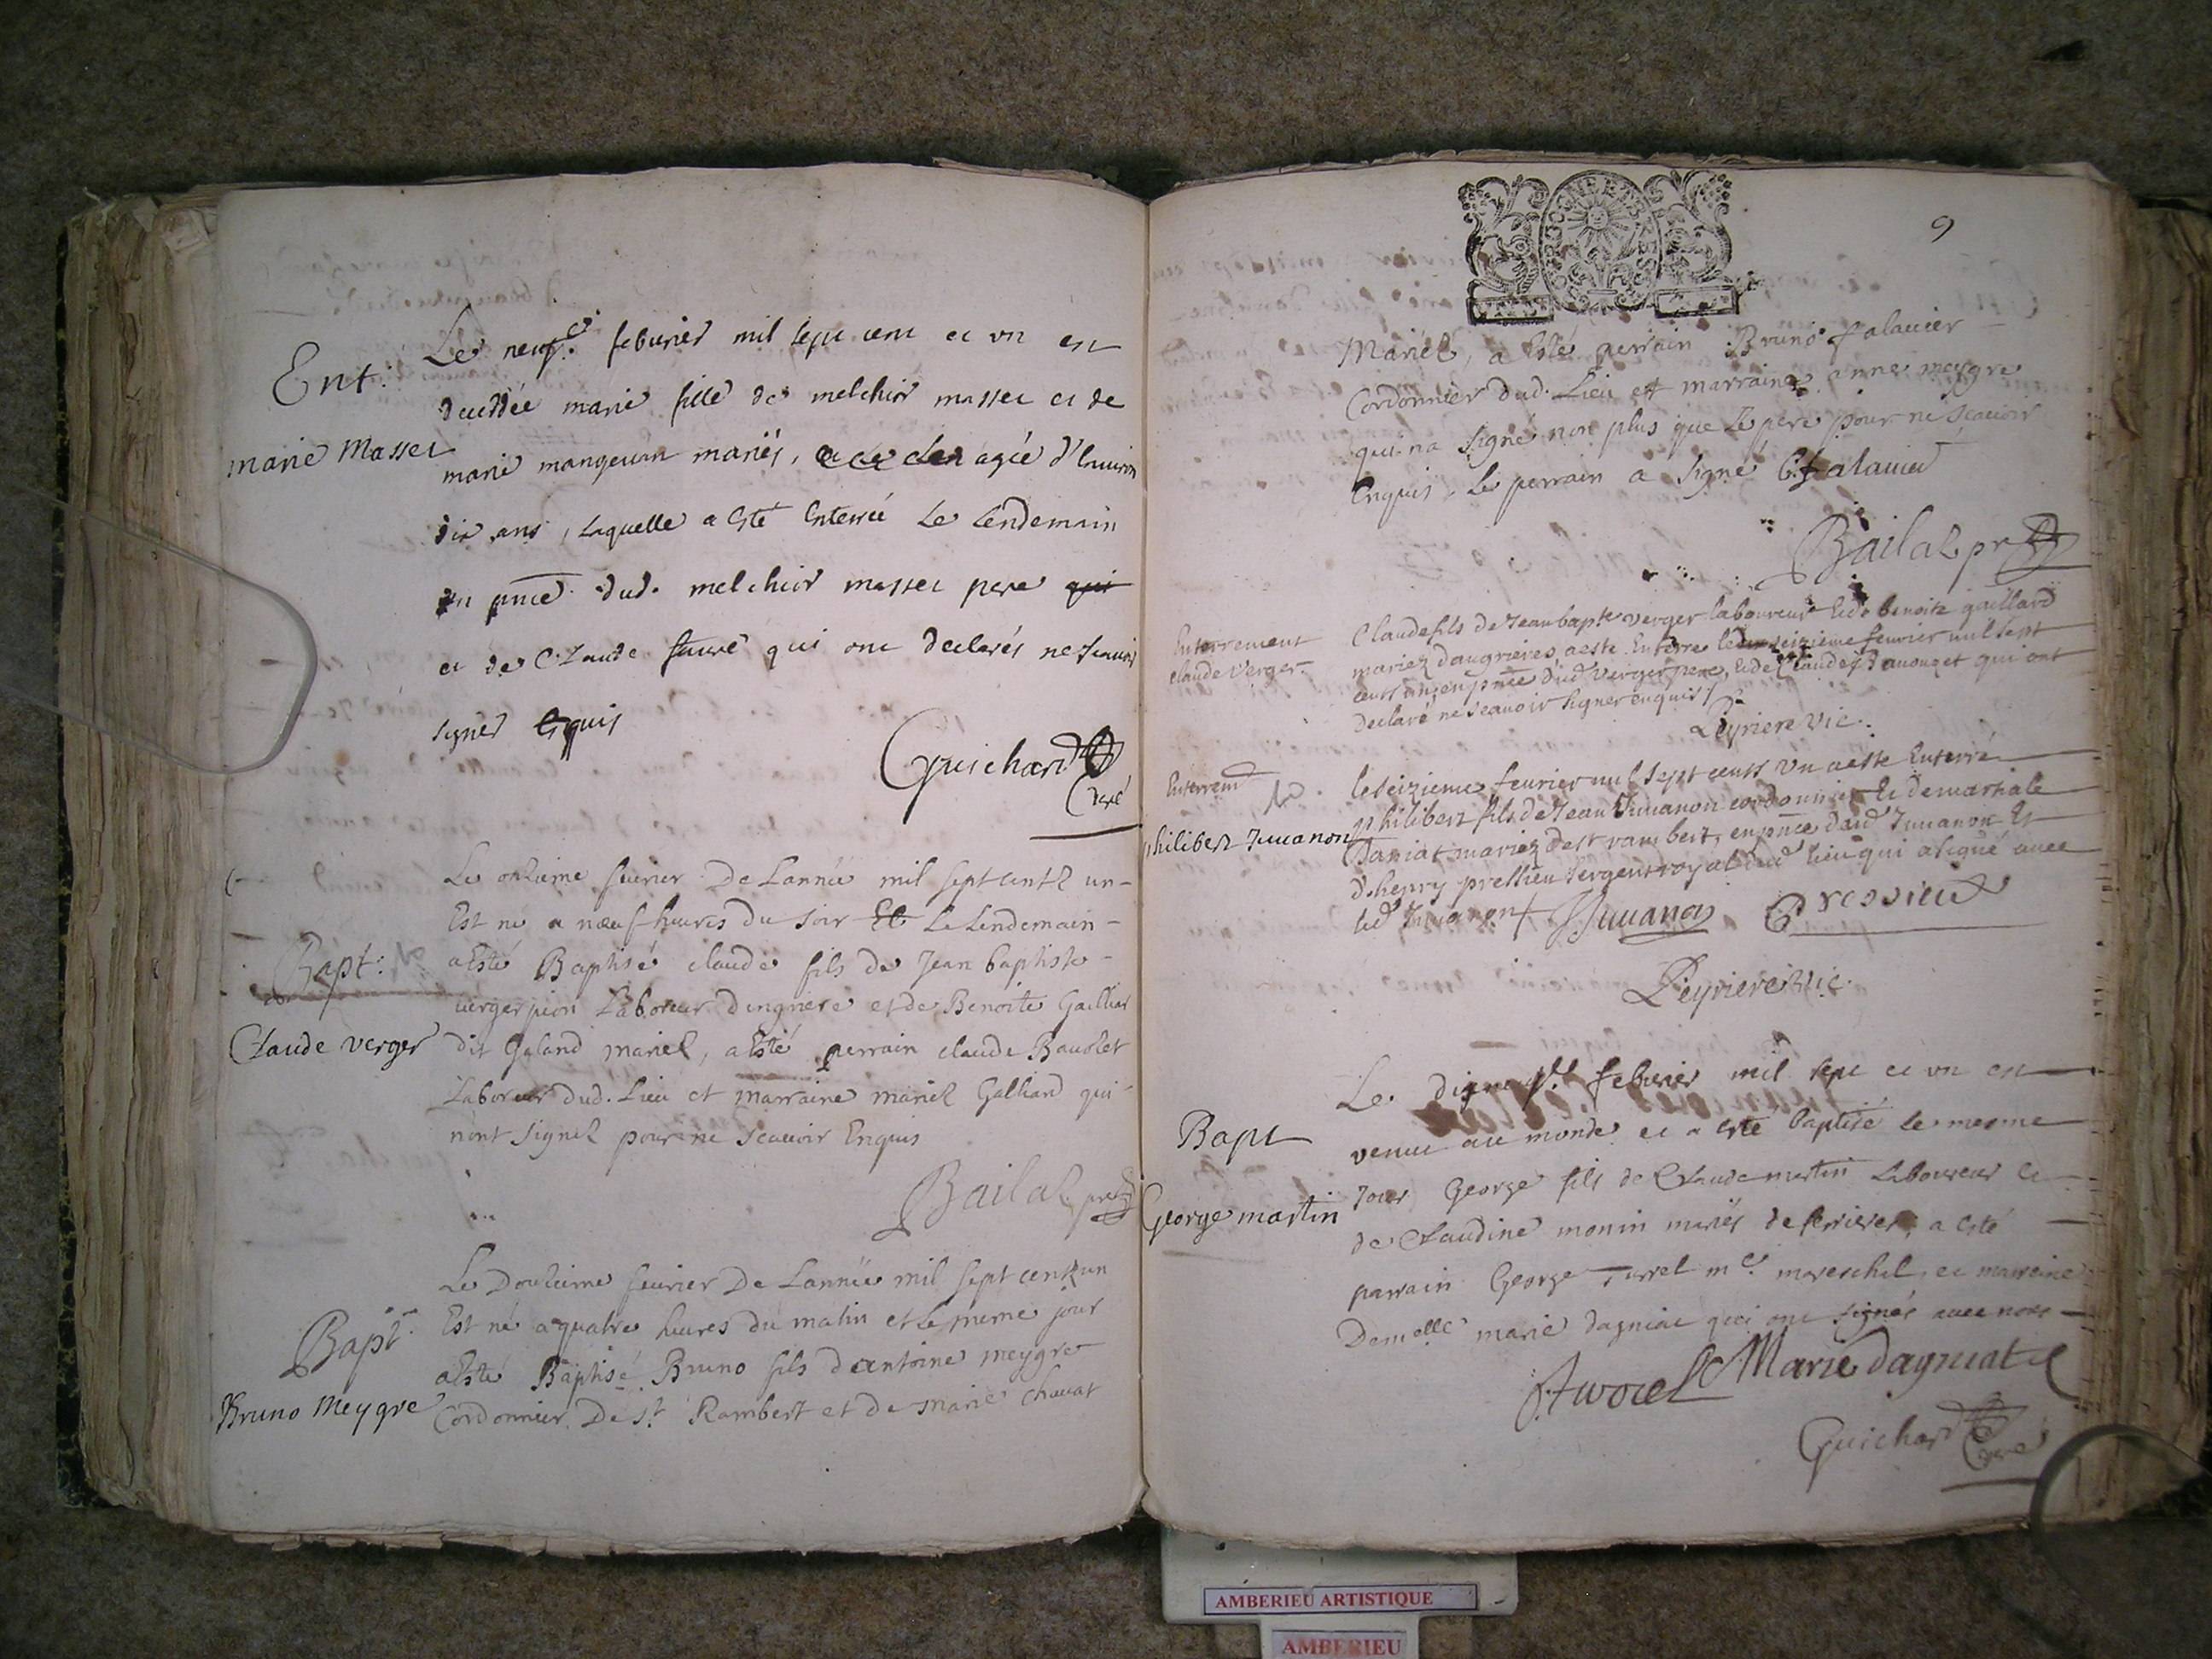 Ent:
marie Masset
Le neufe. feburier mil sept cent et un est
decedée marie fille de melchior masset et de
marie mangeuin mariés, agée d'enuiron
dix ans, laquelle a esté enterrée le lendemain
en pnce. dud. melchior masset pere qui
et de Claude faure qui ont declarés ne scauoir
signer enquis
Guichard
Curé
Bapt:
Claude verger
Le onzieme feurier de L'année mil sept centz un
Est né a neuf heures du soir Et Le Lendemain
a Esté Baptisé claude fils de Jean baptiste
verger pion Laboreur dingriere et de Benoite Galliar
dit Galand mariez, a Esté perrain claude Bauozet
Laboreur dud. Lieu et marraine mariez Galliard qui
n'ont signez pour ne scauoir Enquis
Bailal pr
Bapt
Bruno Meygre
Le Douzieme feurier De L'année mil sept centz un
Est né a quatre heures du matin et Le meme jour
a Esté Baptisé Bruno fils d'antoine meygre
Cordonnier De st Rambert et de marie chauat
9
Mariez, a Esté perrain Bruno falauier
Cordonnier dud. Lieu et marraine anne meygre
qui na signé non plus que Le pere pour ne scauoir
Enquis, Le perrain a signé B. falauier
Bailal pr
Enterrement
claude Verger
Claude fils de Jean bapte verger laboureur et de benoite gaillard
mariez daugrieres a este Enterre le seizieme feurier mil sept
cents un en pnce dud verger pere, et de claude bauouzet qui ont
declaré ne scauoir signer enquis
Leyriere vic.
Enterremt
philibert Juuanon
le seizieme feurier mil sept cents un a este Enterré
philibert fils de Jean Juuanon cordonnier et de martiale
Janiat mariez de st rambert, en pnce dud Juuanon et
d'henry pressieu sergent royal dud lieu qui a signé auec
led Juuanon
J Juuanon
Pressieu
Leyriere vic.
Bapt
George martin
Le dixneufe. feburier mil sept et un est
venu au monde et a esté baptisé le mesme
Jour George fils de Claude martin Laboureur et
de Claudine monin mariés de serrieres, a esté
parrain George Turrel me. mareschal, et marraine
Demelle marie dagniat qui ont signés auec nous
Marie dagniat
Guichard
Curé
AMBERIEU ARTISTIQUE
AMBERIEU